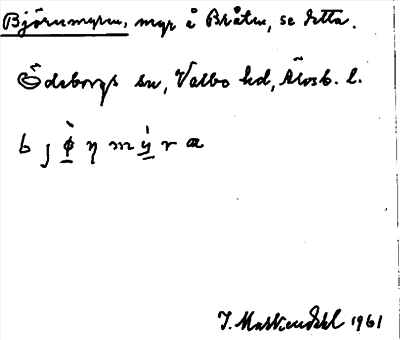 Björnmyren, myr å Bråten, se detta.
Ödeborgs sn, Valbo hd, Älvsb. l.
b j ø̀ η m ý r a
1961